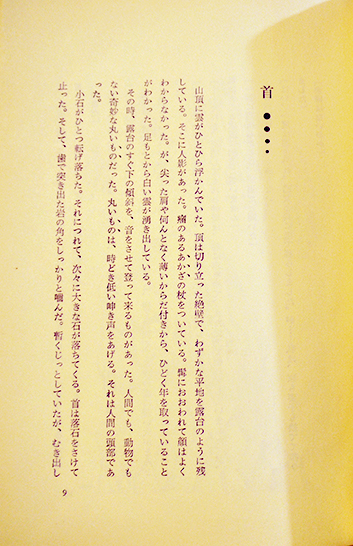 首 ●●●●
山頂に雲がひとひら浮かんでいた。頂は切り立った絶壁で、わずかな平地を露台のように残
している。そこに人影があった。瘤のあるあかざの杖をついている。髯におおわれて顔はよく
わからなかった。が、尖った肩や何んとなく薄いからだ付きから、ひどく年を取っていること
がわかった。足もとから白い雲が湧き出している。
その時、露台のすぐ下の傾斜を、音をさせて登って来るものがあった。人間でも、動物でも
ない奇妙な丸いものだった。丸いものは、時どき低い呻き声をあげる。それは人間の頭部であ
った。
小石がひとつ転げ落ちた。それにつれて、次々に大きな石が落ちてくる。首は落石をさけて
止った。そして、歯で突き出た岩の角をしっかりと嚙んだ。暫くじっとしていたが、むき出し
9